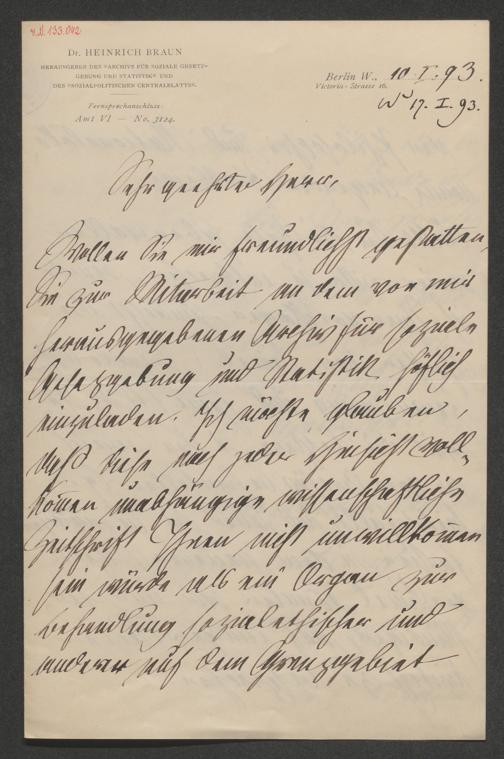 4.N.133.042
Dr. HEINRICH BRAUN
HERAUSGEBER DES »ARCHIVS FÜR SOZIALE GESETZ-
GEBUNG UND STATISTIK« UND
DES »SOZIALPOLITISCHEN CENTRALBLATTES«.
Fernsprechanschluss:
Amt VI — No. 3124.
Berlin W., 10. I. 93.
Victoria-Strasse 16.
17. I. 93.
Sehr geehrter Herr,
Wollen Sie mir freundlichst gestatten,
Sie zur Mitarbeit an dem von mir
herausgegebenen Archiv für soziale
Gesetzgebung und Statistik höflich
einzuladen. Ich möchte glauben,
daß diese nach jeder Hinsicht voll-
kom̄en unabhängige wissenschaftliche
Zeitschrift Ihnen nicht unwillkom̄en
sein würde als ein Organ zur
Behandlung sozialethischer und
anderer auf dem Grenzgebiet